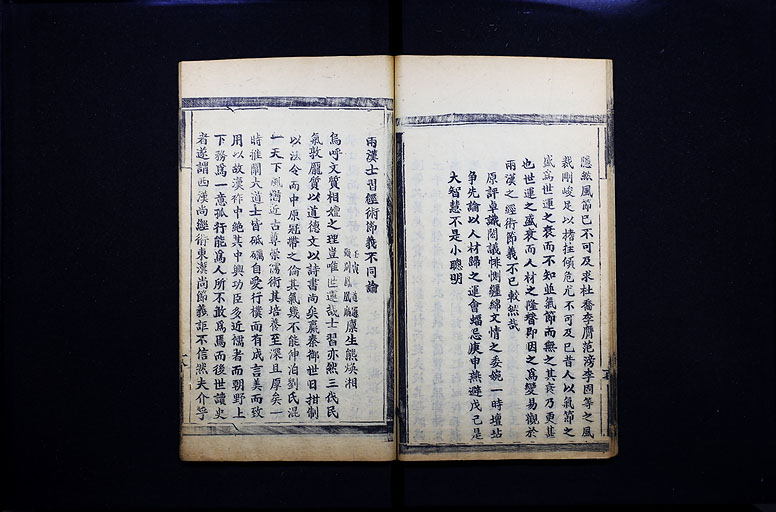 隱然風節已不可及求杜喬李膺范滂李固等之風
裁剛峻足以撐拄傾危尤不可及已昔人以氣節之
盛為世運之衰而不知並氣節而無之其衰乃更甚
也世運之盛衰而人材之隆替即因之為變易觀於
兩漢之經術節義不已較然哉
原評卓識閎議悱惻纏綿文情之委婉一時壇坫
爭先論以人材歸之運會蝠忌庚申燕避戊己是
大智慧不是小聰明
兩漢士習經術節義不同論
康生熊煥湘
烏呼文質相嬗之理豈唯世運哉士習亦然三代民
氣敦龐質以道德文以詩書尚矣嬴秦御世日拑制
以法令而中原冠帶之倫其氣幾不能伸洎劉氏混
一天下風瀏近古尊崇儒術其培養至深且厚矣一
時推闡大道士皆砥礪自愛行樸而有成言美而致
用以故漢祚中絕其中興功臣多近儒者而朝野上
下務為一意孤行能為人所不敢為焉而後世讀史
者遂謂西漢尚經術東漢尚節義詎不信然夫介乎